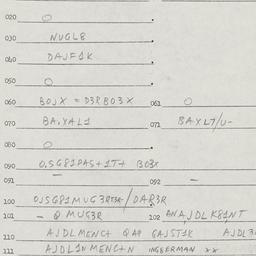 020 O
030 NUGL8
040 DAJF1K
050 O
060 BOJX = D3RBO3X 061 O
070 BA,XAL1 071 BAXL7/U-
080 O
090 O,SG81PAS+1T+ BO3X
091 — 092 —
100 O,SG81MUG3RT3R-/DAR3R
101 - Q MUG3R 102 ANAJDLK81NT
110 AJDLMENC+ GAJST1K AJDL3
111 AJDL1NMENC+N INGGERMAN **